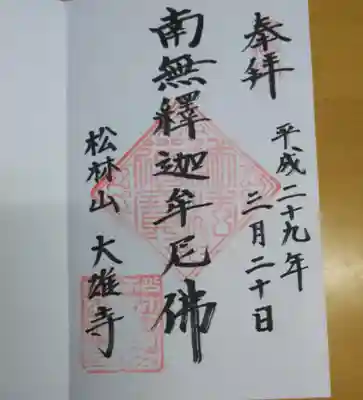 奉拝
平成二十九年
三月二十日
南無釋迦牟尼佛
松林山 大雄寺